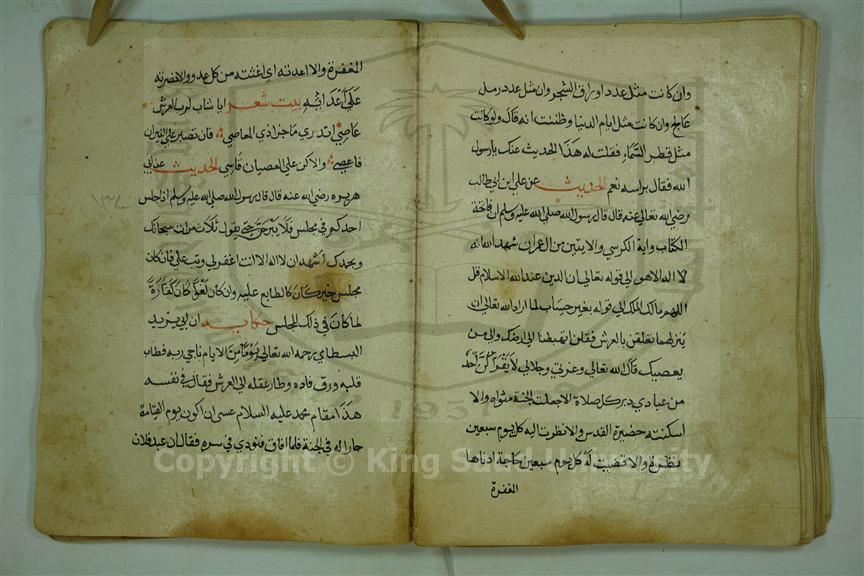 وان كانت مثل عدد اوراق الشجر وان مثل عدد رمل
عالج وان كانت مثل ايام الدنيا وظننت انه قال ولو كانت
مثل قطر السماء فقلت له هذا الحديث عنك يارسول
الله فقال براسه نعم الحديث عن علي ابن ابي طالب
رضي الله تعالى عنه قال قال رسول الله صلى الله عليه وسلم ان فاتحة
الكتاب واية الكرسي والايتين من ال عمران شهد الله انه
لا اله الا هو الى قوله تعالى ان الدين عند الله الاسلام قل
اللهم مالك الملك الى قوله بغير حساب لما اراد الله تعالى ان
ينزلهما تعلقن بالعرش فقلن اتهبطنا الى ارضك والى من
يعصيك قال الله تعالى وعزتي وجلالي لا يقراكن احد
من عبادي دبر كل صلاة الا جعلت الجنة مثواه والا
اسكنته حضيرة القدس والا نظرت اليه كل يوم سبعين
نظرة والا قضيت له كل يوم سبعين حاجة ادناها
المغفرة
المغفرة والا اعدته اي اغثته من كل عدو والا نصرته
على اعدائه بيت شعر ايا شاب لرب العرش
عاصي اتدري ما جزا ذي المعاصي فان تصبر على النيران
فاعصي والا كن على العصيان قاسي الحديث عن ابي
هريره رضي الله عنه قال قال رسول الله صلى الله عليه وسلم اذا جلس
احدكم في مجلس فلا يبرحن حتى يقول ثلاث مرات سبحانك
وبحمدك اشهد ان لا اله الا انت اغفر لي وتب علي فان كان
مجلس خير كان كالطابع عليه وان كان لغوا كان كفارة
لما كان في ذلك المجلس حكايه ان ابو يزيد
البسطامي رحمه الله تعالى يوما من الايام ناجى ربه فطاب
قلبه ورق فاده وطار عقله الى العرش فقال في نفسه
هذا مقام محمد عليه السلام عسى ان اكون يوم القيامة
جاراله في الجنة فلما افاق فنودي في سره فقال ان عبد فلان
١٣٧
Copyright © King Saud University
1957